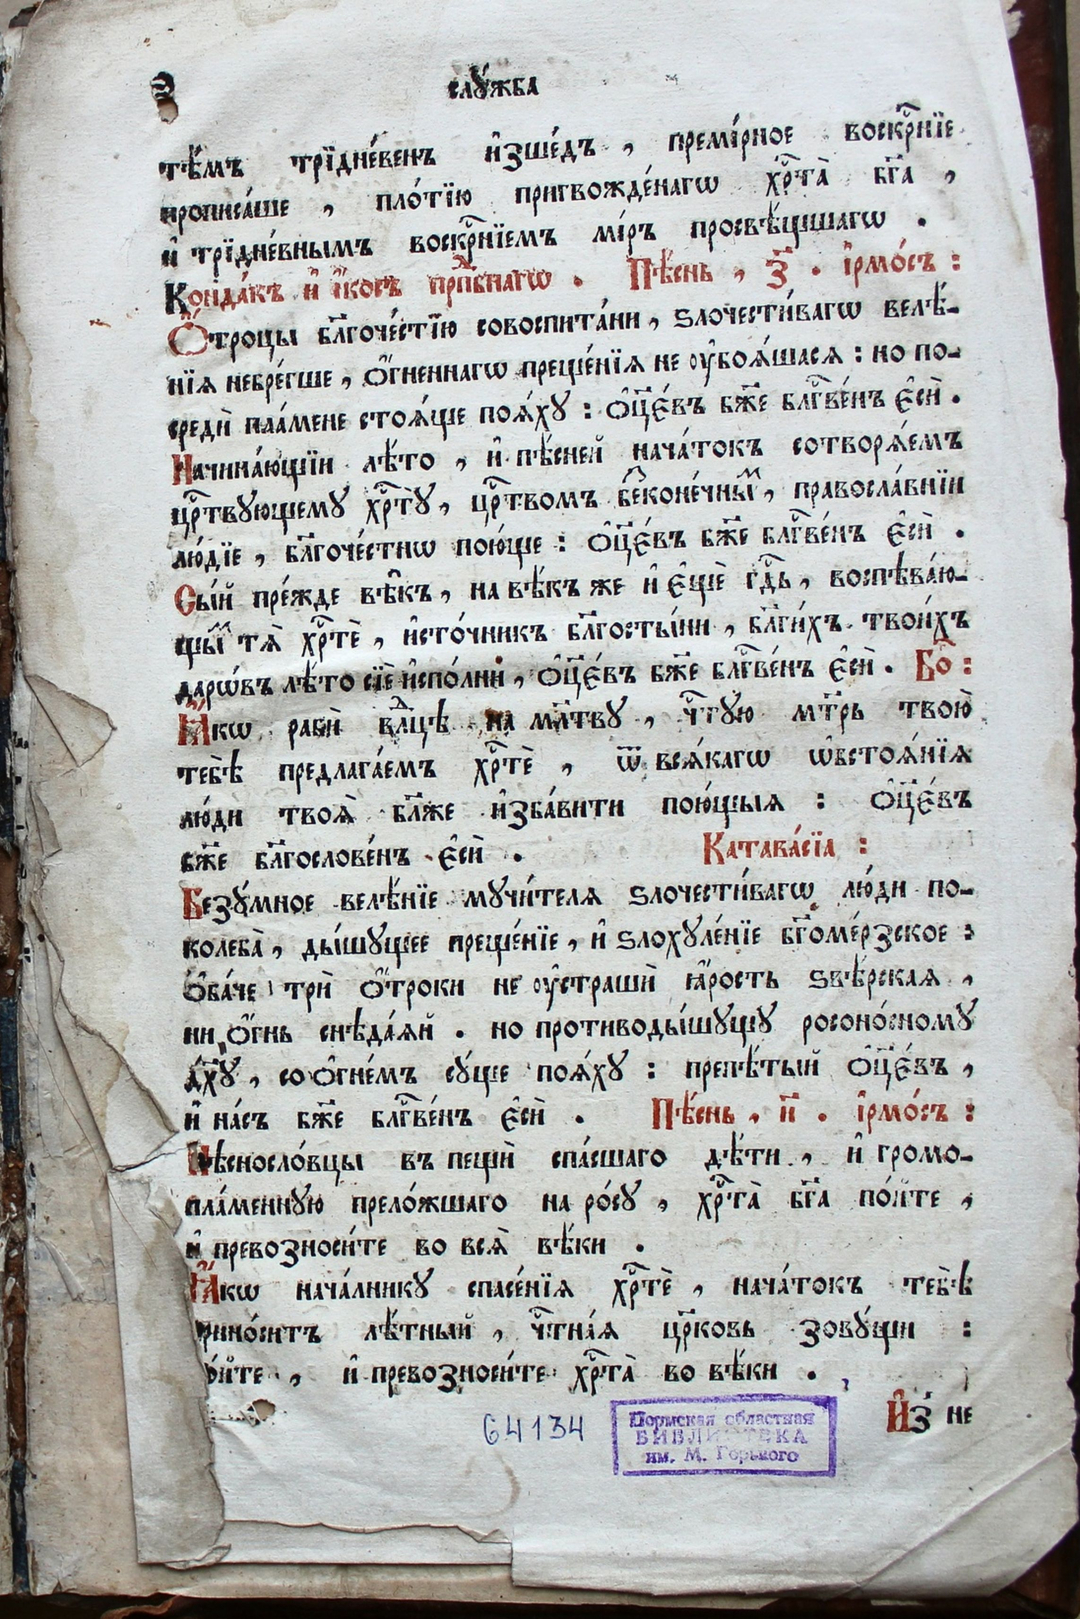 слꙋ́жба
тѣ́мъ трїдне́венъ и҆зше́дъ , преми́рное воскр҃нїе
прописа́ше , пло́тїю пригвожде́нагѡ хр҃та̀ бг҃а ,
и҆ трїдне́внымъ воскр҃нїемъ мі́ръ просвѣ́щшагѡ .
Конда́къ и҆ і҆́косъ прп҃бнагѡ . Пѣ́снь , з҃ . і҆рмо́съ :
Ѻ҆́троцы бл҃гоче́стїю совоспита́ни , ѕлочести́вагѡ велѣ́-
нїѧ небре́гше , ѻ҆́гненнагѡ преще́нїѧ не оу҆боѧ́шасѧ : но по-
средѝ пла́мене стоѧ́ще поѧ́хꙋ : ѻ҆ц҃е́въ бж҃е бл҃гве́нъ є҆сѝ .
Начина́ющїи лѣ́то , и҆ пѣ́сней нача́токъ сотворѧ́емъ
цр҃твꙋющемꙋ хр҃тꙋ̀ , цр҃твомъ бе҃коне́чныⷨ , правосла́внїи
лю́дїе , бл҃гоче́стнѡ пою́ще : ѻ҆ц҃е́въ бж҃е бл҃гве́нъ є҆сѝ .
Сы́й пре́жде вѣ̑къ , на вѣ́къ же и҆ є҆щѐ гд҃ь , воспѣва́ю-
щыⷨ тѧ̀ хр҃тѐ , и҆сто́чникъ бл҃госты́ни , бл҃ги́хъ твои́хъ
дарѡ́въ лѣ́то сїѐ и҆спо́лни , ѻ҆ц҃е́въ бж҃е бл҃гве́нъ є҆сѝ . Бо҃ :
Ꙗ҆́кѡ рабѝ вл҃цѣ на мл҃твꙋ , чт҃ꙋю мт҃рь твою̀
тебѣ̀ предлага́емъ хр҃тѐ , ѿ всѧ́кагѡ ѡ҆бстоѧ́нїѧ
лю́ди твоѧ̀ бл҃же и҆зба́вити пою́щыѧ : ѻ҆ц҃е́въ
бж҃е бл҃гослове́нъ є҆сѝ . Катава́сїа :
Безꙋ́мное велѣ́нїе мꙋчи́телѧ ѕлочести́вагѡ лю́ди по-
колеба̀ , ды́шꙋщее преще́нїе , и҆ ѕлохꙋле́нїе бг҃оме́рзское :
ѻ҆ба́че трѝ ѻ҆́троки не оу҆страшѝ ꙗ҆́рость ѕвѣ́рскаѧ ,
ни ѻ҆́гнь снѣда́ѧй . но противоды́шꙋщꙋ росоно́сномꙋ
дх҃ꙋ , со ѻ҆гне́мъ сꙋ́ще поѧ́хꙋ : препѣ́тый ѻ҆ц҃е́въ ,
и҆ на́съ бж҃е бл҃гве́нъ є҆сѝ . Пѣ́снь , и҃ . і҆рмо́съ :
Пѣсносло́вцы въ пещѝ спа́сшаго дѣ́ти , и҆ громо-
пла́меннꙋю прело́жшаго на ро́сꙋ , хр҃та̀ бг҃а по́йте ,
и҆ превозноси́те во всѧ̀ вѣ́ки .
Ꙗ҆́кѡ нача́лникꙋ спасе́нїѧ хр҃тѐ , нача́токъ тебѣ̀
прино́ситъ лѣ́тный , чт҃на́ѧ цр҃ковь зовꙋ́щи :
по́йте , и҆ превозноси́те хр҃та̀ во вѣ́ки .
И҆з̾ не
64134
Пермская областная
БИБЛИОТЕКА
им. М. Горького